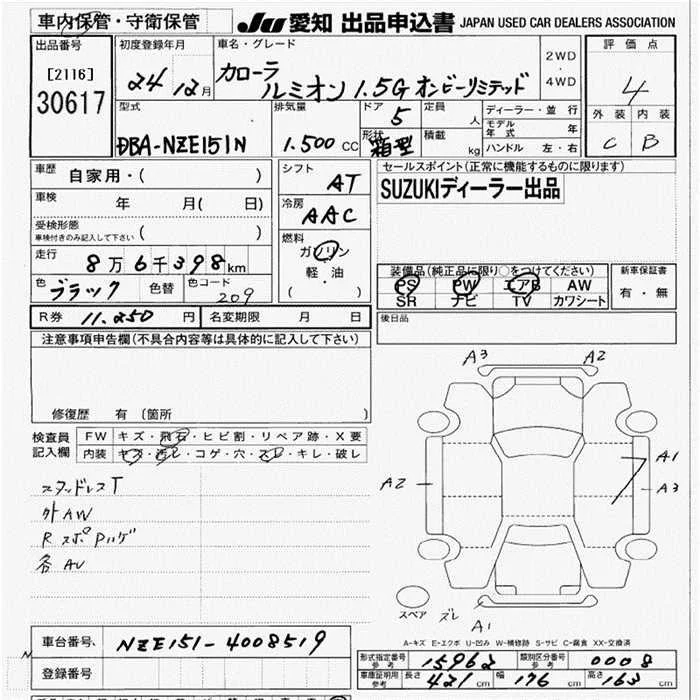 車内保管・守衛保管
JU 愛知 出品申込書 JAPAN USED CAR DEALERS ASSOCIATION
出品番号
[2116]
30617
初度登録年月
24 12月
車名・グレード
カローラ
ルミオン 1.5G オンビーリミテッド
2WD
・
4WD
評価点
4
外装 内装
C B
型式
DBA-NZE151N
排気量
1.500 CC
ドア
5
形状
箱型
定員
人
積載
kg
ディーラー・並行
モデル年式 年
ハンドル 左・右
車歴
自家用・( )
車検
年 月( 日)
受検形態
車検付きのみ記入して下さい ( )
走行
8万6千398km
色
ブラック 色替
色コード
209
シフト
AT
冷房
AAC
燃料
ガソリン
・
軽・油
( )
セールスポイント(正常に機能するものに限ります)
SUZUKIディーラー出品
装備品(純正品に限り○をつけてください)
PS PW エアB AW
SR ナビ TV カワシート
新車保証書
有・無
R券 11.250 円 名変期限 月 日
後日品
注意事項申告欄(不具合内容等は具体的に記入して下さい)
修復歴 有 〔箇所 〕
検査員
記入欄
FW キズ・飛石・ヒビ割・リペア跡・X要
内装 キズ・汚レ・コゲ・穴・スレ・キレ・破レ
スタッドレスT
外AW
R スポ Pハゲ
各AU
A3 A2
A2
A1
A3
スペア
ズレ A1
A-キズ E-エクボ U-凹み W-補修跡 S-サビ C-腐食 XX-交換済
車台番号、 NZE151-4008519
登録番号
形式指定番号
参考
15962
類別区分番号
参考
0008
車庫証明用
参考
長さ 421cm 幅 176cm 高さ 163cm